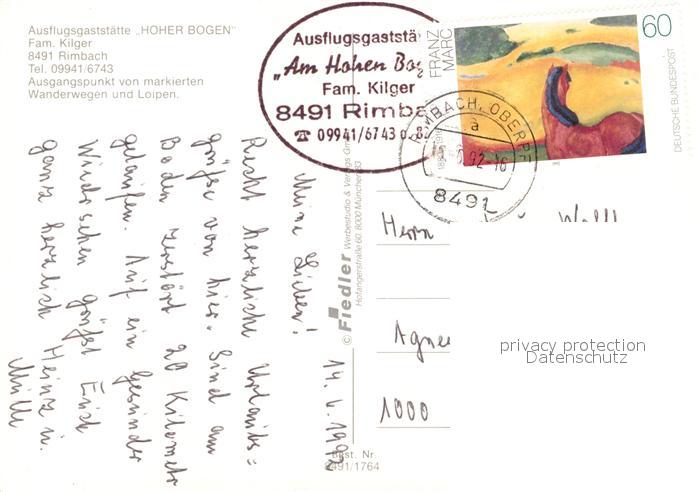 Ausflugsgaststätte „HOHER BOGEN"
Fam. Kilger
8491 Rimbach
Tel. 09941/6743
Ausgangspunkt von markierten
Wanderwegen und Loipen.
Ausflugsgaststä
„Am Hohen Bog
Fam. Kilger
8491 Rimba
☎ 09941/6743 o. 82
FRANZ
MARC
60
DEUTSCHE BUNDESPOST
RIMBACH, OBERPF
a
92-16
8491
14. 6. 1992
Meine Lieben!
Recht herzliche Urlaubs=
grüße von hier. Sind am
Boden zerstört 20 Kilometer
gelaufen. Auf ein gesundes
Wiedersehen grüßt Euch
ganz herzlich Heinz u.
Milli
© Fiedler Werbestudio & Verlags Gm
Hofangerstraße 60 8000 München 83
Best. Nr.
8491/1764
Herrn
Agnes
1000
privacy protection
Datenschutz